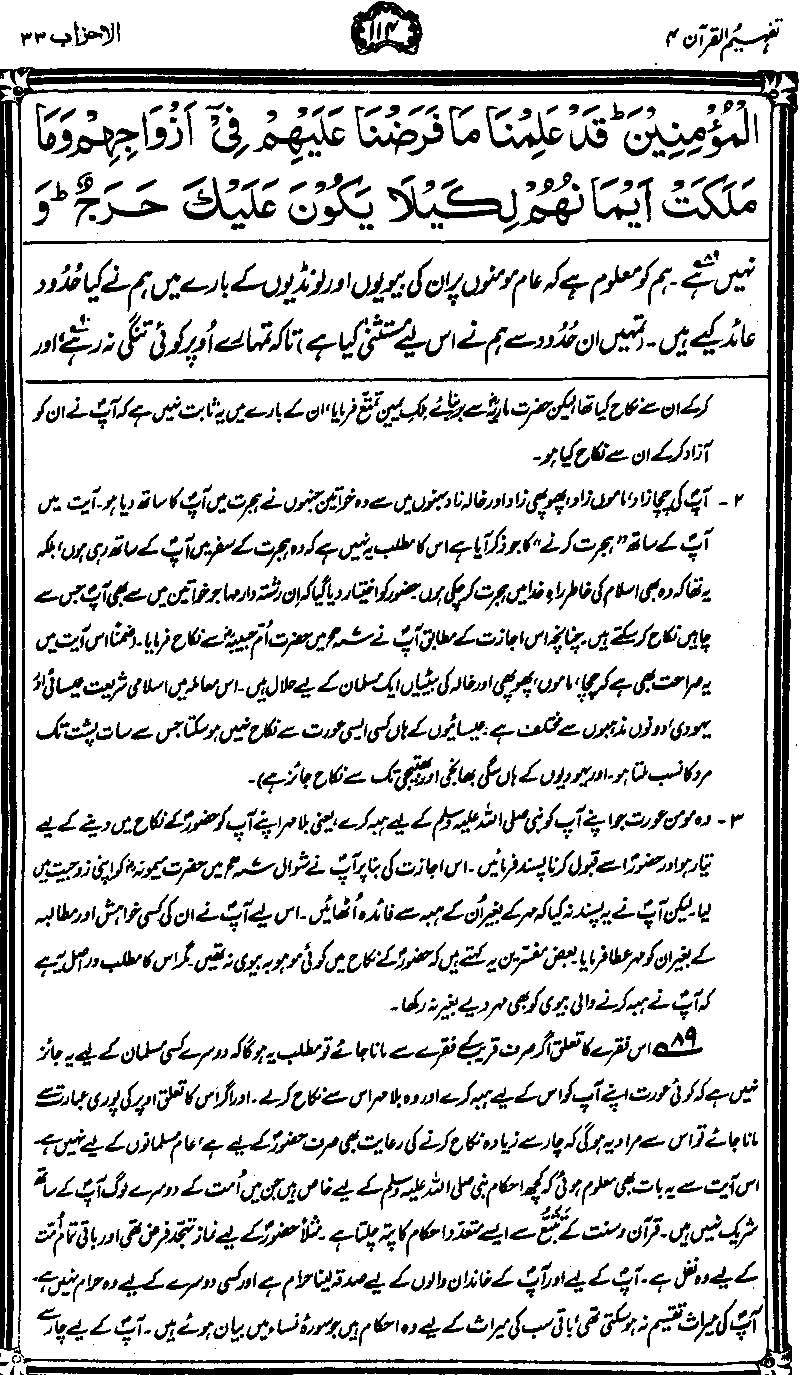 تفہیم القرآن ۴
۱۱۴
الاحزاب ۳۳
الْمُؤْمِنِيْنَ ؕ قَدْ عَلِمْنَا مَا فَرَضْنَا عَلَيْهِمْ فِيْۤ اَزْوَاجِهِمْ وَمَا
مَلَكَتْ اَيْمَانُهُمْ لِكَيْلَا يَكُوْنَ عَلَيْكَ حَرَجٌ ؕ وَ
نہیں ہے۸۹۔ ہم کو معلوم ہے کہ عام مومنوں پر ان کی بیویوں اور لونڈیوں کے بارے میں ہم نے کیا حُدُود
عائد کیے ہیں۔ (تمہیں ان حُدُود سے ہم نے اس لیے مستثنیٰ کیا ہے) تاکہ تمہارے اُوپر کوئی تنگی نہ رہے۹۰، اور
کرکے ان سے نکاح کیا تھا لیکن حضرت ماریہؓ سے بربنائے ملکِ یمین تمتع فرمایا، ان کے بارے میں یہ ثابت نہیں ہے کہ آپؐ نے ان کو
آزاد کرکے ان سے نکاح کیا ہو۔
۲ - آپؐ کی چچا زاد، ماموں زاد، پھوپھی زاد اور خالہ زاد بہنوں میں سے وہ خواتین جنہوں نے ہجرت میں آپؐ کا ساتھ دیا ہو۔ آیت میں
آپؐ کے ساتھ ”ہجرت کرنے“ کا جو ذکر آیا ہے اس کا مطلب یہ نہیں ہے کہ وہ ہجرت کے سفر میں آپؐ کے ساتھ رہی ہوں، بلکہ
یہ تھا کہ وہ بھی اسلام کی خاطر راہِ خدا میں ہجرت کر چکی ہوں۔ حضورؐ کو اختیار دیا گیا کہ ان رشتہ دار مہاجر خواتین میں سے بھی آپؐ جس سے
چاہیں نکاح کر سکتے ہیں۔ چنانچہ اس اجازت کے مطابق آپؐ نے سنہ ۷ھ میں حضرت اُمّ حبیبہؓ سے نکاح فرمایا۔ (ضمناً اس آیت میں
یہ صراحت بھی ہے کہ چچا، ماموں، پھوپھی اور خالہ کی بیٹیاں ایک مسلمان کے لیے حلال ہیں۔ اس معاملہ میں اسلامی شریعت عیسائی اور
یہودی، دونوں مذہبوں سے مختلف ہے۔ عیسائیوں کے ہاں کسی ایسی عورت سے نکاح نہیں ہو سکتا جس سے سات پشت تک
مرد کا نسب ملتا ہو۔ اور یہودیوں کے ہاں سگی بھانجی اور بھتیجی تک سے نکاح جائز ہے)۔
۳ - وہ مومن عورت جو اپنے آپ کو نبی صلی اللہ علیہ وسلم کے لیے ہبہ کرے، یعنی بلا مہر اپنے آپ کو حضورؐ کے نکاح میں دینے کے لیے
تیار ہو اور حضورؐ اسے قبول کرنا پسند فرمائیں۔ اس اجازت کی بنا پر آپؐ نے شوال سنہ ۷ھ میں حضرت میمونہؓ کو اپنی زوجیت میں
لیا۔ لیکن آپؐ نے یہ پسند نہ کیا کہ مہر کے بغیر اُن کے ہبہ سے فائدہ اُٹھائیں۔ اس لیے آپؐ نے ان کی کسی خواہش اور مطالبہ
کے بغیر ان کو مہر عطا فرمایا۔ بعض مفسرین یہ کہتے ہیں کہ حضورؐ کے نکاح میں کوئی موہوبہ بیوی نہ تھیں۔ مگر اس کا مطلب دراصل یہ ہے
کہ آپؐ نے ہبہ کرنے والی بیوی کو بھی مہر دیے بغیر نہ رکھا۔
۸۹ اس فقرے کا تعلق اگر صرف قریب کے فقرے سے مانا جائے تو مطلب یہ ہوگا کہ دوسرے کسی مسلمان کے لیے یہ جائز
نہیں ہے کہ کوئی عورت اپنے آپ کو اس کے لیے ہبہ کرے اور وہ بلا مہر اس سے نکاح کرلے۔ اور اگر اس کا تعلق اوپر کی پوری عبارت سے
مانا جائے تو اس سے مراد یہ ہوگی کہ چار سے زیادہ نکاح کرنے کی رعایت بھی صرف حضورؐ کے لیے ہے، عام مسلمانوں کے لیے نہیں ہے۔
اس آیت سے یہ بات بھی معلوم ہوئی کہ کچھ احکام نبی صلی اللہ علیہ وسلم کے لیے خاص ہیں جن میں اُمت کے دوسرے لوگ آپؐ کے ساتھ
شریک نہیں ہیں۔ قرآن و سنت کے تتبّع سے ایسے متعدد احکام کا پتہ چلتا ہے۔ مثلاً حضورؐ کے لیے نماز تہجد فرض تھی اور باقی تمام اُمت
کے لیے وہ نفل ہے۔ آپؐ کے لیے اور آپؐ کے خاندان والوں کے لیے صدقہ لینا حرام ہے اور کسی دوسرے کے لیے وہ حرام نہیں ہے۔
آپؐ کی میراث تقسیم نہ ہو سکتی تھی، باقی سب کی میراث کے لیے وہ احکام ہیں جو سورۂ نساء میں بیان ہوئے ہیں۔ آپؐ کے لیے چار سے